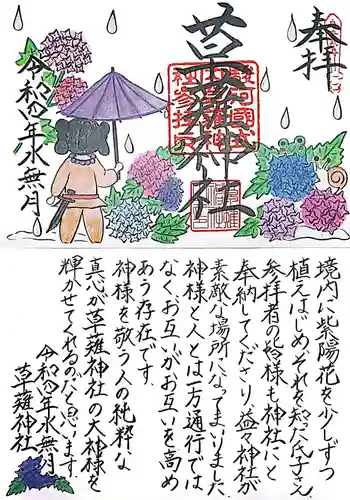 奉拝
草薙神社
令和四年水無月
境内に紫陽花を少しずつ
植えはじめ、それを知った氏子さん
参拝者の皆様も神社にと
奉納してくださり、益々神社が
素敵な場所になってまいりました
神様と人とは一方通行では
なくお互いがお互いを高め
あう存在です。
神様を敬う人の純粋な
真心が草薙神社の大神様を
輝かせてくれるのだと思います
令和四年水無月
草薙神社